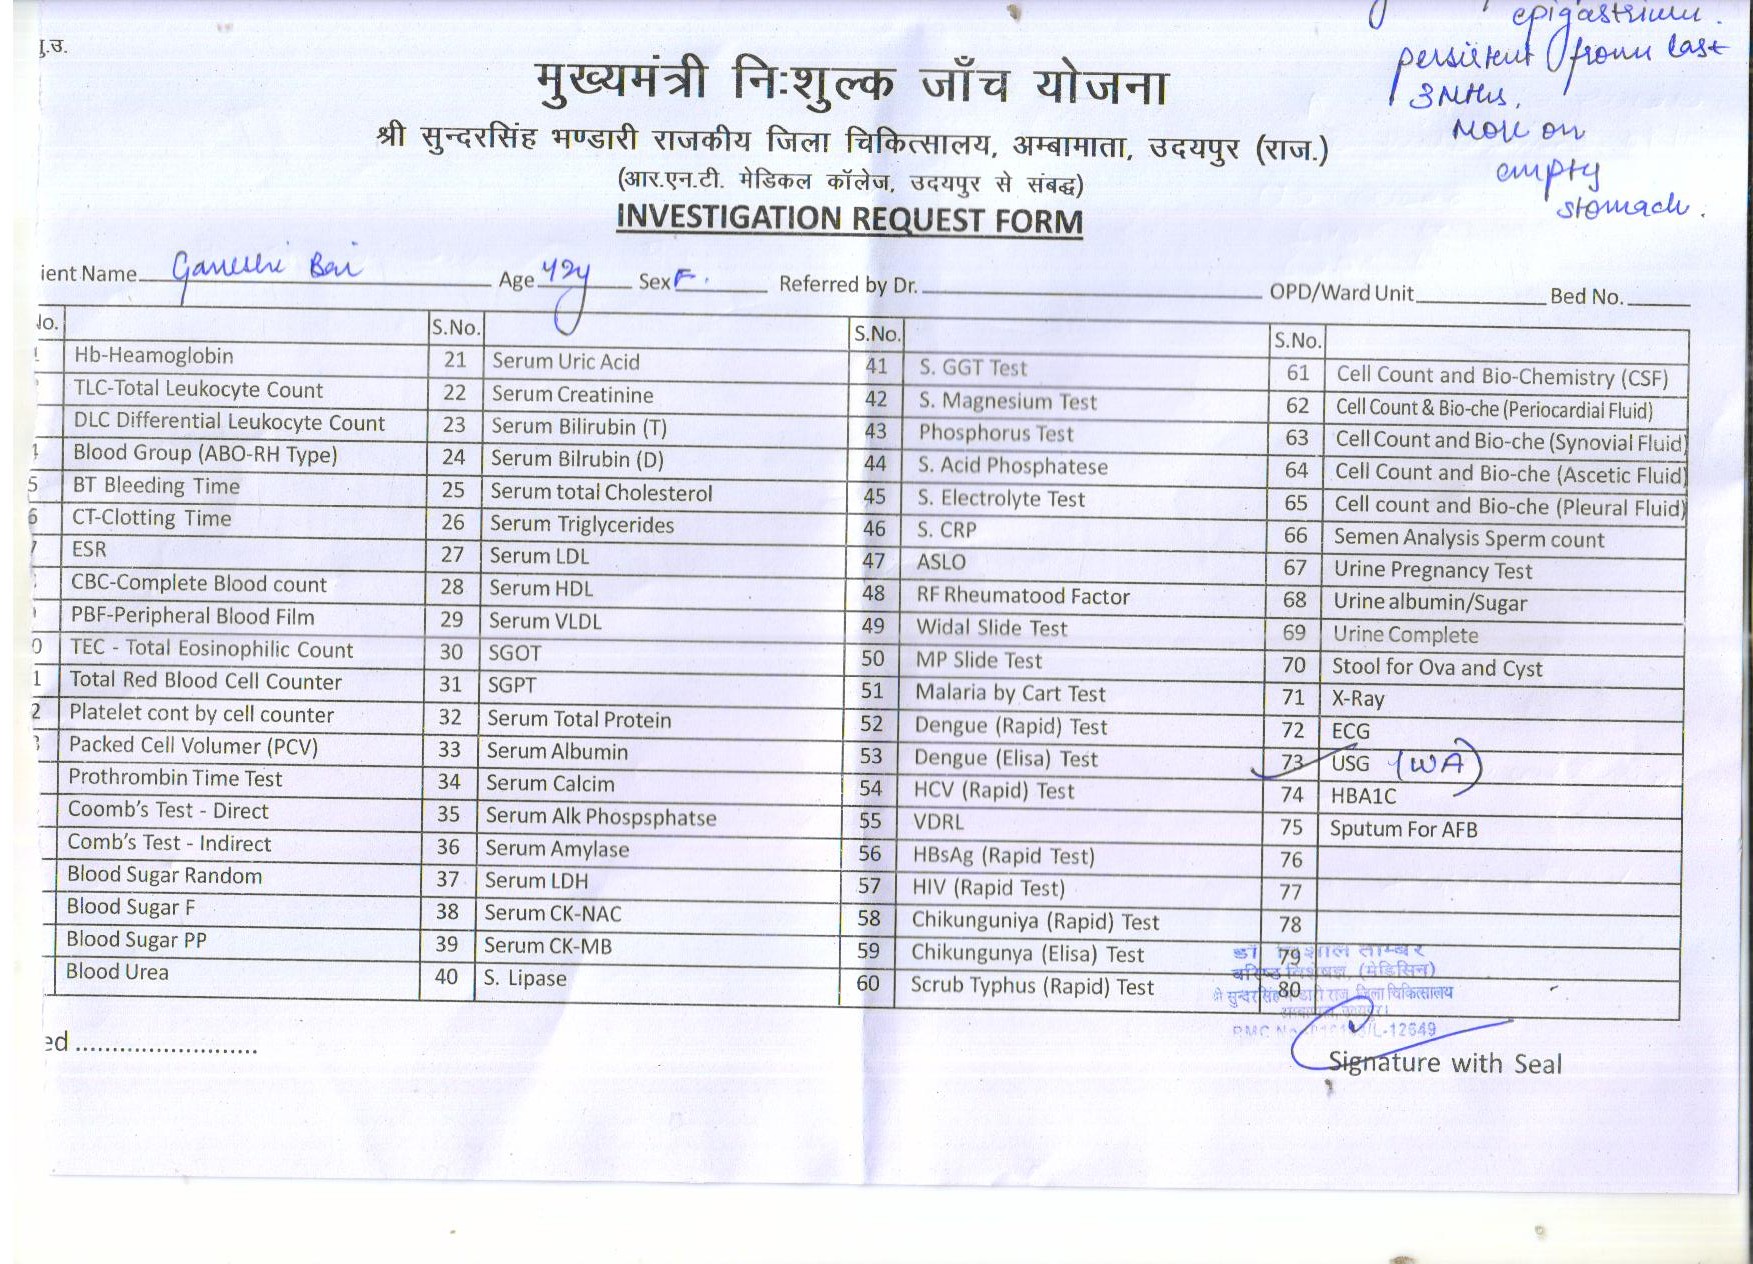 epigastrium.
persistent from last
3 Mths.
More on
empty
stomach.
मुख्यमंत्री निःशुल्क जाँच योजना
श्री सुन्दरसिंह भण्डारी राजकीय जिला चिकित्सालय, अम्बामाता, उदयपुर (राज.)
(आर.एन.टी. मेडिकल कॉलेज, उदयपुर से संबद्ध)
INVESTIGATION REQUEST FORM
ient Name Ganeshi Bai Age 42y Sex F. Referred by Dr. OPD/Ward Unit Bed No.
No. S.No. S.No. S.No.
Hb-Heamoglobin 21 Serum Uric Acid 41 S. GGT Test 61 Cell Count and Bio-Chemistry (CSF)
TLC-Total Leukocyte Count 22 Serum Creatinine 42 S. Magnesium Test 62 Cell Count & Bio-che (Periocardial Fluid)
DLC Differential Leukocyte Count 23 Serum Bilirubin (T) 43 Phosphorus Test 63 Cell Count and Bio-che (Synovial Fluid)
4 Blood Group (ABO-RH Type) 24 Serum Bilrubin (D) 44 S. Acid Phosphatese 64 Cell Count and Bio-che (Ascetic Fluid)
5 BT Bleeding Time 25 Serum total Cholesterol 45 S. Electrolyte Test 65 Cell count and Bio-che (Pleural Fluid)
6 CT-Clotting Time 26 Serum Triglycerides 46 S. CRP 66 Semen Analysis Sperm count
7 ESR 27 Serum LDL 47 ASLO 67 Urine Pregnancy Test
CBC-Complete Blood count 28 Serum HDL 48 RF Rheumatood Factor 68 Urine albumin/Sugar
PBF-Peripheral Blood Film 29 Serum VLDL 49 Widal Slide Test 69 Urine Complete
0 TEC - Total Eosinophilic Count 30 SGOT 50 MP Slide Test 70 Stool for Ova and Cyst
1 Total Red Blood Cell Counter 31 SGPT 51 Malaria by Cart Test 71 X-Ray
2 Platelet cont by cell counter 32 Serum Total Protein 52 Dengue (Rapid) Test 72 ECG
3 Packed Cell Volumer (PCV) 33 Serum Albumin 53 Dengue (Elisa) Test 73 USG (WA)
Prothrombin Time Test 34 Serum Calcim 54 HCV (Rapid) Test 74 HBA1C
Coomb's Test - Direct 35 Serum Alk Phospsphatse 55 VDRL 75 Sputum For AFB
Comb's Test - Indirect 36 Serum Amylase 56 HBsAg (Rapid Test) 76
Blood Sugar Random 37 Serum LDH 57 HIV (Rapid Test) 77
Blood Sugar F 38 Serum CK-NAC 58 Chikunguniya (Rapid) Test 78
Blood Sugar PP 39 Serum CK-MB 59 Chikungunya (Elisa) Test 79
Blood Urea 40 S. Lipase 60 Scrub Typhus (Rapid) Test 80
डॉ ताम्बर
वरिष्ठ विशेषज्ञ, (मेडिसिन)
जिला चिकित्सालय
RMC No. 12649
ed
Signature with Seal